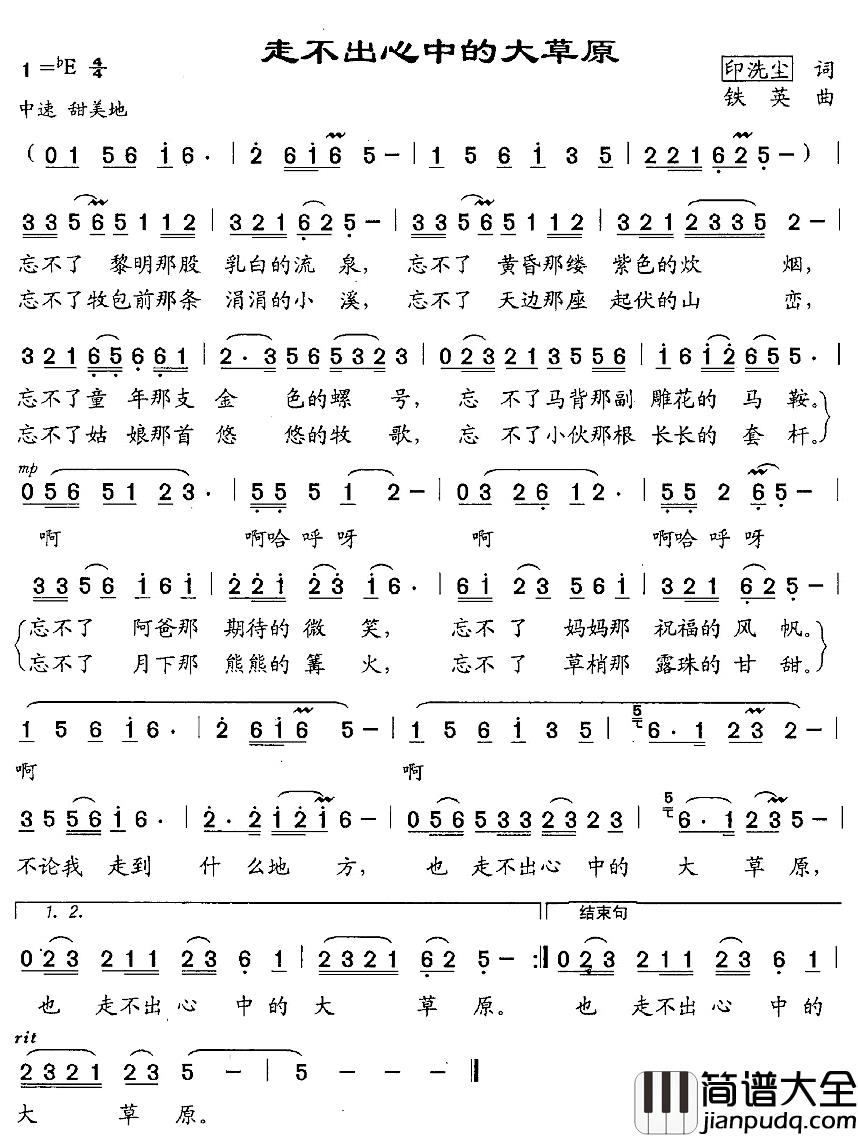 走不出心中的大草原
1=♭E 4/4
印洗尘 词
中速 甜美地
铁英 曲
(01 56 i6. | 2 6i6 5- | 1 5 6 i 3 5 | 221 62 5-) |
3356 51 112 | 321 62 5- | 3356 51 112 | 321 2335 2- |
忘不了 黎明那股 乳白的流泉, 忘不了 黄昏那缕 紫色的炊烟,
忘不了牧包前那条 涓涓的小溪, 忘不了 天边那座 起伏的山峦,
321 65 661 | 2.3 565 5323 | 023 213 555 6 | i6 i2 65 5. |
忘不了童年那支金色的螺号, 忘不了马背那副雕花的马鞍。
忘不了姑娘那首悠悠的牧歌, 忘不了小伙那根长长的套杆。
mp
056 51 23. | 55 5 1 2- | 03 26 12. | 55 2 65- |
啊 啊哈呼呀 啊 啊哈呼呀
3356 i6 i | 22i 23 i6. | 6i 23 56i | 321 62 5- |
忘不了 阿爸那 期待的微笑, 忘不了 妈妈那 祝福的风帆。
忘不了 月下那 熊熊的篝火, 忘不了 草梢那 露珠的甘甜。
1 5 6 i6. | 2 6i6 5- | 1 5 6 i 3 5 | 5 6.1 23 2- |
啊 啊
35 56 i6. | 2.2 i2i 6- | 056 533 23 23 | 5 6.1 23 5- |
不论我 走到 什么地方, 也 走不出心中的大草原,
1. 2. 结束句
023 211 23 6 1 | 2321 62 5- :‖ 023 211 23 6 1 |
也 走不出心中的大草原。 也 走不出心中的
rit
2321 23 5 - | 5 - - - ‖
大草原。
简谱大全
jianpudq.com